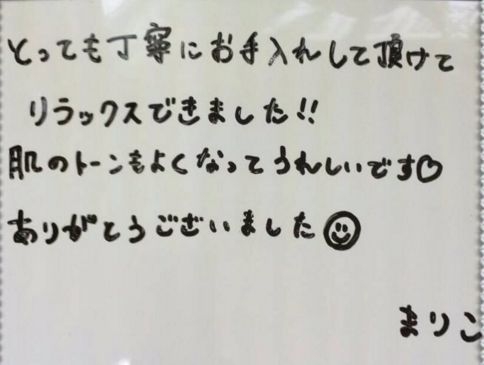 とっても丁寧にお手入れして頂けて
リラックスできました!!
肌のトーンもよくなってうれしいです♡
ありがとうございました☺
まりこ